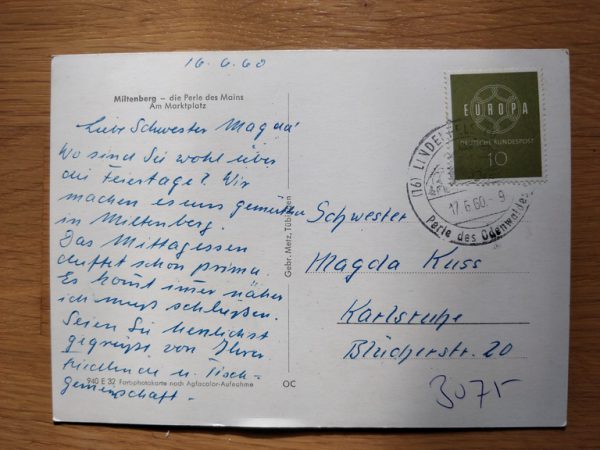 16.6.60
Miltenberg – die Perle des Mains
Am Marktplatz
Liebe Schwester Magda!
Wo sind Sie wohl über
die Feiertage? Wir
machen es uns gemütlich
in Miltenberg.
Das Mittagessen
duftet schon prima.
Es kommt immer näher
ich muß schließen.
Seien Sie herzlichst
gegrüßt von Ihrer
u. Tisch-
gemeinschaft.
940 E 32 Farbphotokarte nach Agfacolor-Aufnahme
OC
Gebr. Metz, Tübingen
EUROPA
DEUTSCHE BUNDESPOST
10
(16) LINDENFELS
17.6.60.-9
Perle des Odenwaldes
Schwester
Magda Kuss
Karlsruhe
Blücherstr. 20
3075